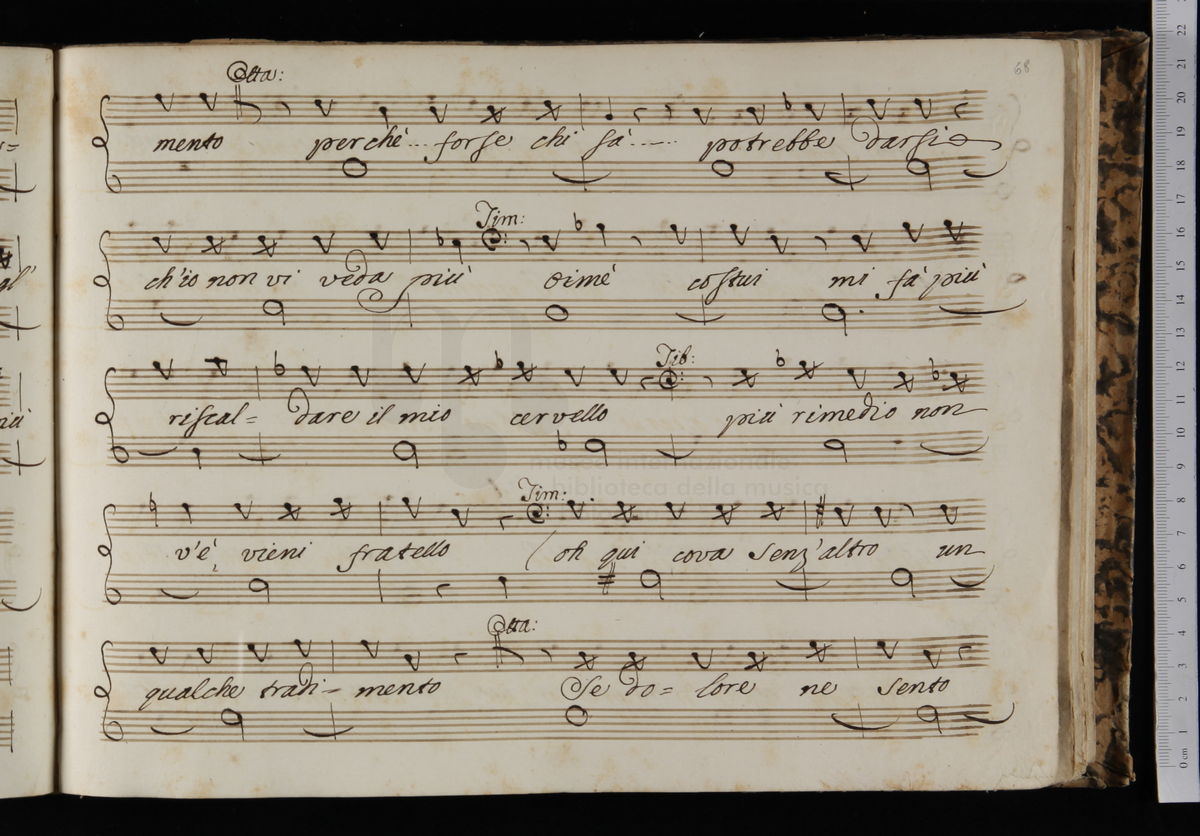 68
Otta:
mento perchè... forse chi sà..... potrebbe darsi
Tim:
ch'io non vi veda più oimè costui mi fà più
Tib:
riscal= dare il mio cervello più rimedio non
museo internazionale
biblioteca della musica
Tim:
v'è, vieni fratello (oh qui cova senz'altro un
Otta:
qualche tradi- mento Se do= lore ne sento
0 cm 1 2 3 4 5 6 7 8 9 10 11 12 13 14 15 16 17 18 19 20 21 22